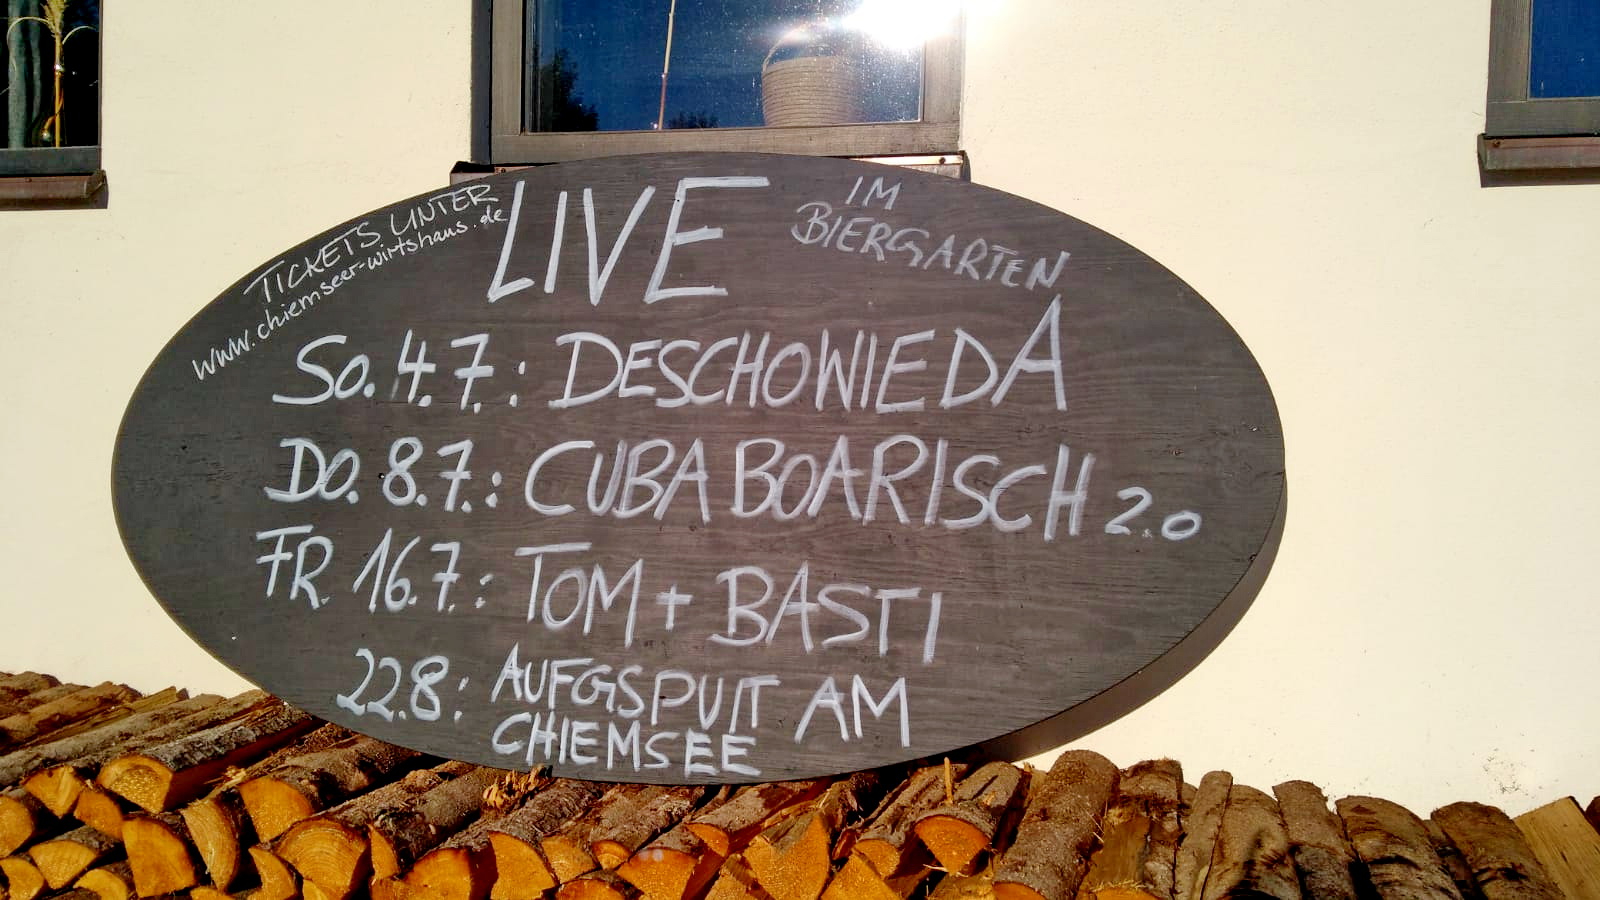 TICKETS UNTER
www.chiemseer-wirtshaus.de
LIVE
IM
BIERGARTEN
SO. 4.7.: DESCHOWIEDA
DO. 8.7.: CUBABOARISCH 2.0
FR. 16.7.: TOM + BASTI
22.8: AUFGSPUIT AM
CHIEMSEE